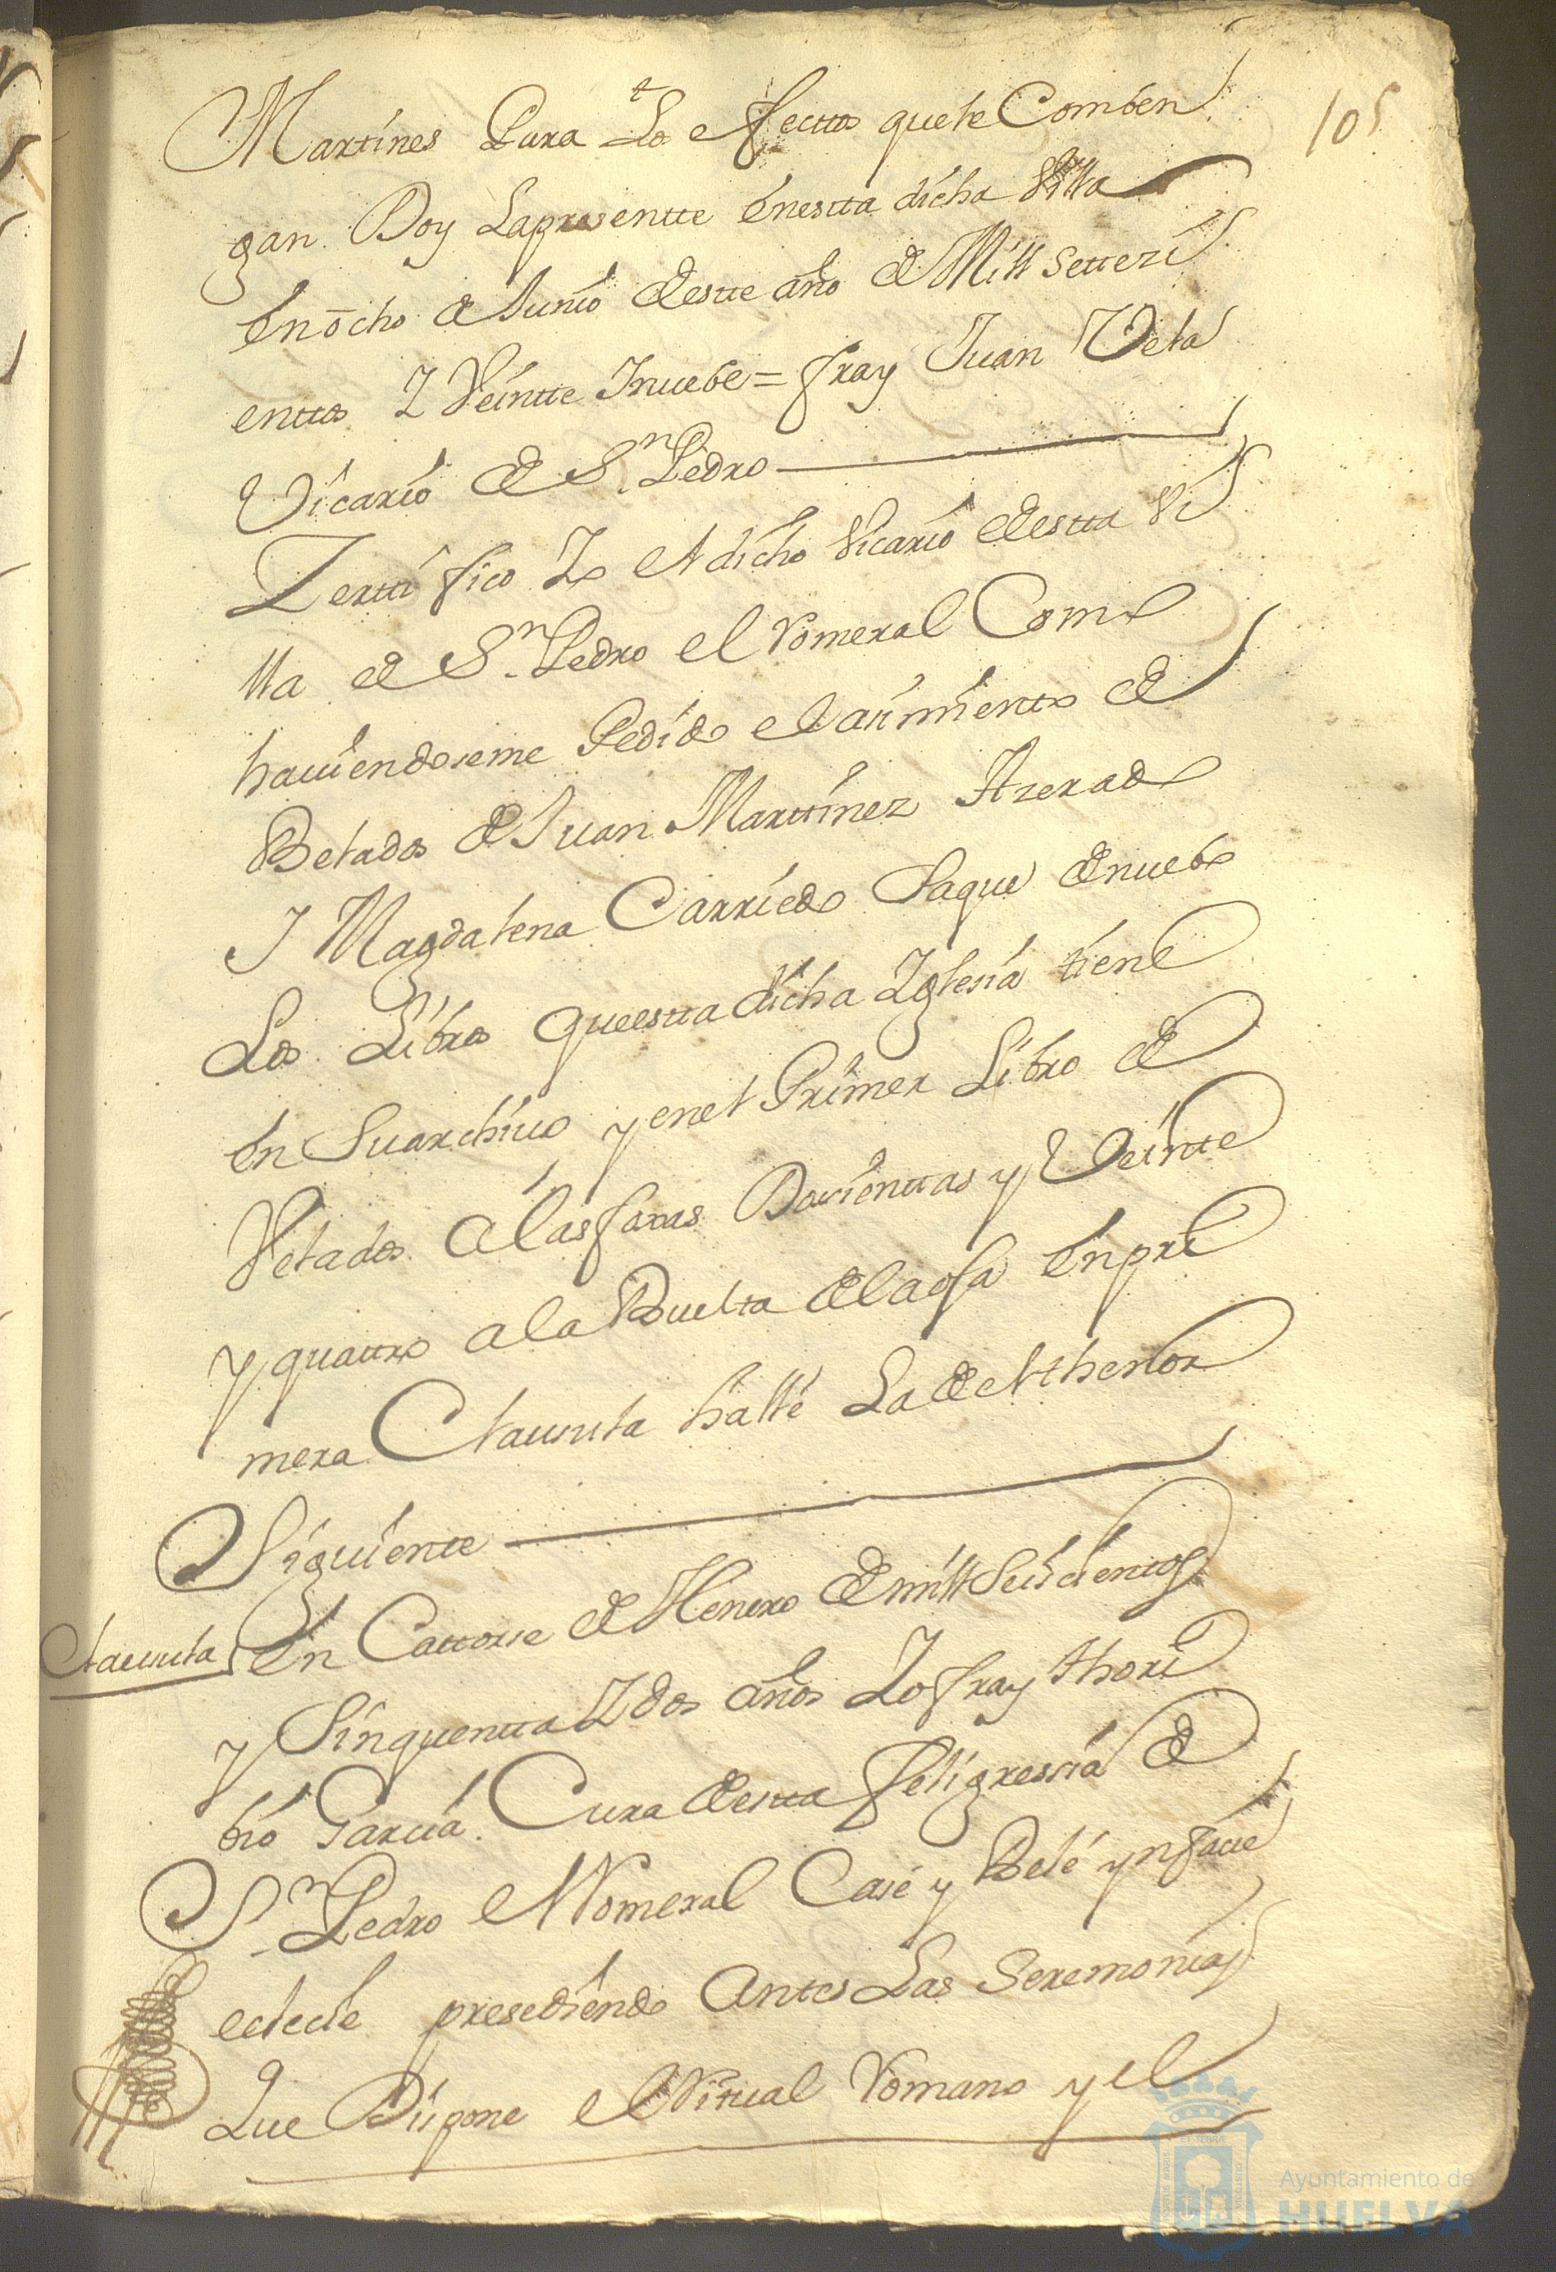 105
Martines Para Lo efectto quele Comben
gan Doy Lapresentte Enestta dicha Villa
En ocho de Junio deste año de Mill settezi
enttos Y Veintte Ynuebe = fray Juan Vela
Vicario de Sn Pedro
Zerttifico Yo el dicho Vicario destta Vi
lla de Sn Pedro el Romeral Como
haviendoseme Pedido el asimiento de
Belados de Juan Marttinez Azerado
Y Magdalena Carriedo Saque denuebo
Los Libros queestta dicha Yglesia tiene
En Suarchivo y enel Primer Libro de
Velados a lasfoxas Docienttas y Veintte
y quattro a la Buelta de la oja En pri
mera Clausula hallé La del thenor
Siguientte
Clausula En Cattorse de Henero de mill Seiscientos
y Sinquentta Y dos años Yo fray thori
bio Garcia Cura destta feligresia de
Sn Pedro el Romeral Casé y Belé ynfacie
eclecie presediendo Antes Las Seremonias
Que Dispone el Ritual Romano y el
Ayuntamiento de
HUELVA